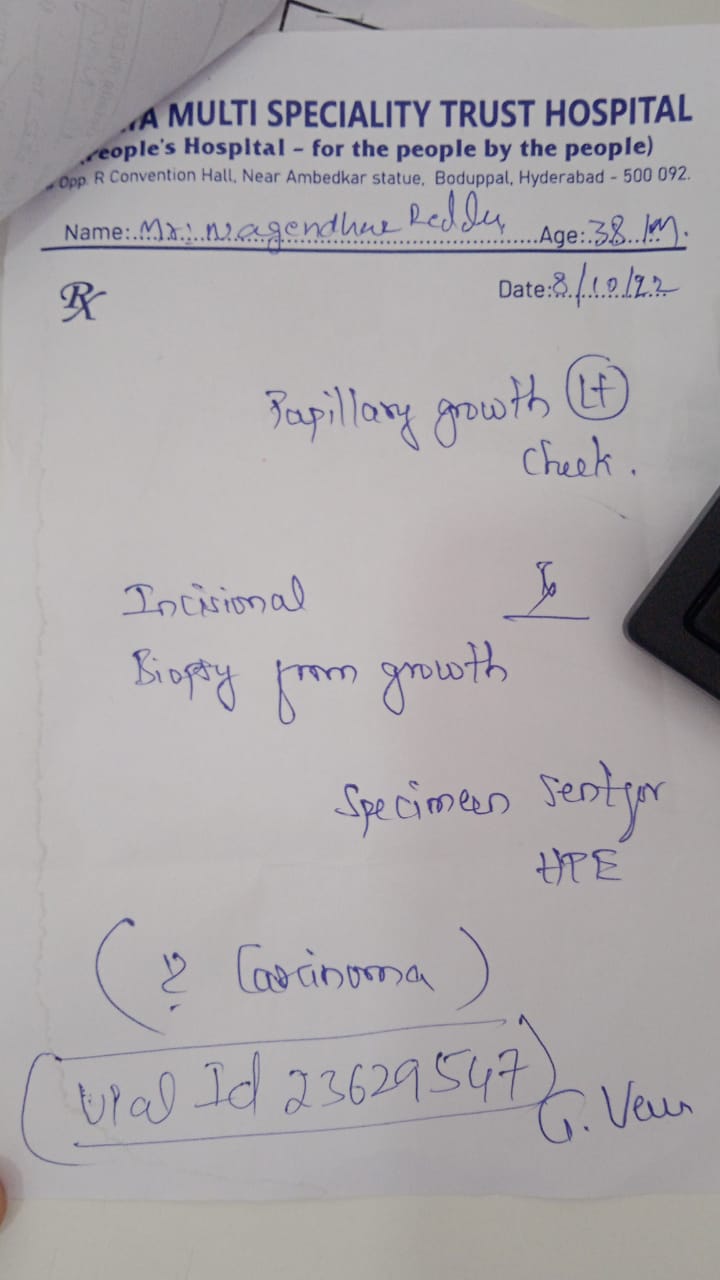 A MULTI SPECIALITY TRUST HOSPITAL
eople's Hospital - for the people by the people)
Opp. R Convention Hall, Near Ambedkar statue, Boduppal, Hyderabad - 500 092.
Name: Mr. Nagendhar Reddy Age: 38/M.
Rx Date: 8/10/22
Papillary growth Lt
cheek.
Incisional
Biopsy from growth
Specimen sent for
HPE
(? Carcinoma)
Vial Id 23629547
G.